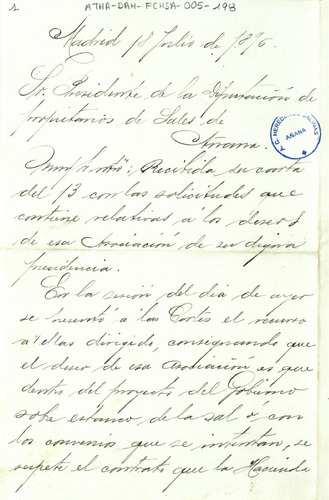 1
ATHA-DAH-FCHSA-005-198
Madrid 18 Julio de 1896.
Sr. Presidente de la Diputación de
propietarios de Sales de
Añana.
P. G. HEREDEROS SALINAS
AÑANA
Recibida su carta
del 13 con las solicitudes que
contiene relativas a los deseos
de esa Asociación de su digna
presidencia.
En la sesión del dia de ayer
se presentó a las Cortes el recurso
a ellas dirigido, consignando que
el deseo de esa Asociación es que
dentro del proyecto del Gobierno
sobre estanco de la sal y con
los convenios que se intentan, se
respete el contrato que la Hacienda